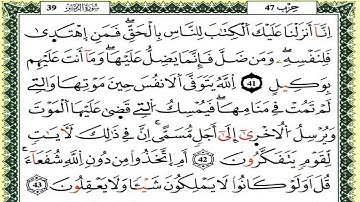 39 سُورَةُ الزُّمَرِ حزب 47
اِنَّآ أَنزَلْنَا عَلَيْكَ اَ۬لْكِتَٰبَ لِلنَّاسِ بِالْحَقِّۖ فَمَنِ اِ۪هْتَد۪ىٰ
فَلِنَفْسِهِۦۖ وَمَن ضَلَّ فَإِنَّمَا يَضِلُّ عَلَيْهَاۖ وَمَآ أَنتَ عَلَيْهِم
بِوَكِيلٍۖ 41 اِ۬للَّهُ يَتَوَفَّى اَ۬لَانفُسَ حِينَ مَوْتِهَا وَالتِے
لَمْ تَمُتْ فِے مَنَامِهَاۖ فَيُمْسِكُ اُ۬لتِے قَض۪ىٰ عَلَيْهَا اَ۬لْمَوْتَ
وَيُرْسِلُ اُ۬لُاخْر۪ىٰٓ إِلَىٰٓ أَجَلٖ مُّسَمّىًۖ اِنَّ فِے ذَٰلِكَ لَأٓيَٰتٖ
لِّقَوْمٖ يَتَفَكَّرُونَۖ 42 أَمِ اِ۪تَّخَذُواْ مِن دُونِ اِ۬للَّهِ شُفَعَآءَۖ
قُلَ اَوَلَوْ كَانُواْ لَا يَمْلِكُونَ شَيْـٔاٗ وَلَا يَعْقِلُونَۖ 43